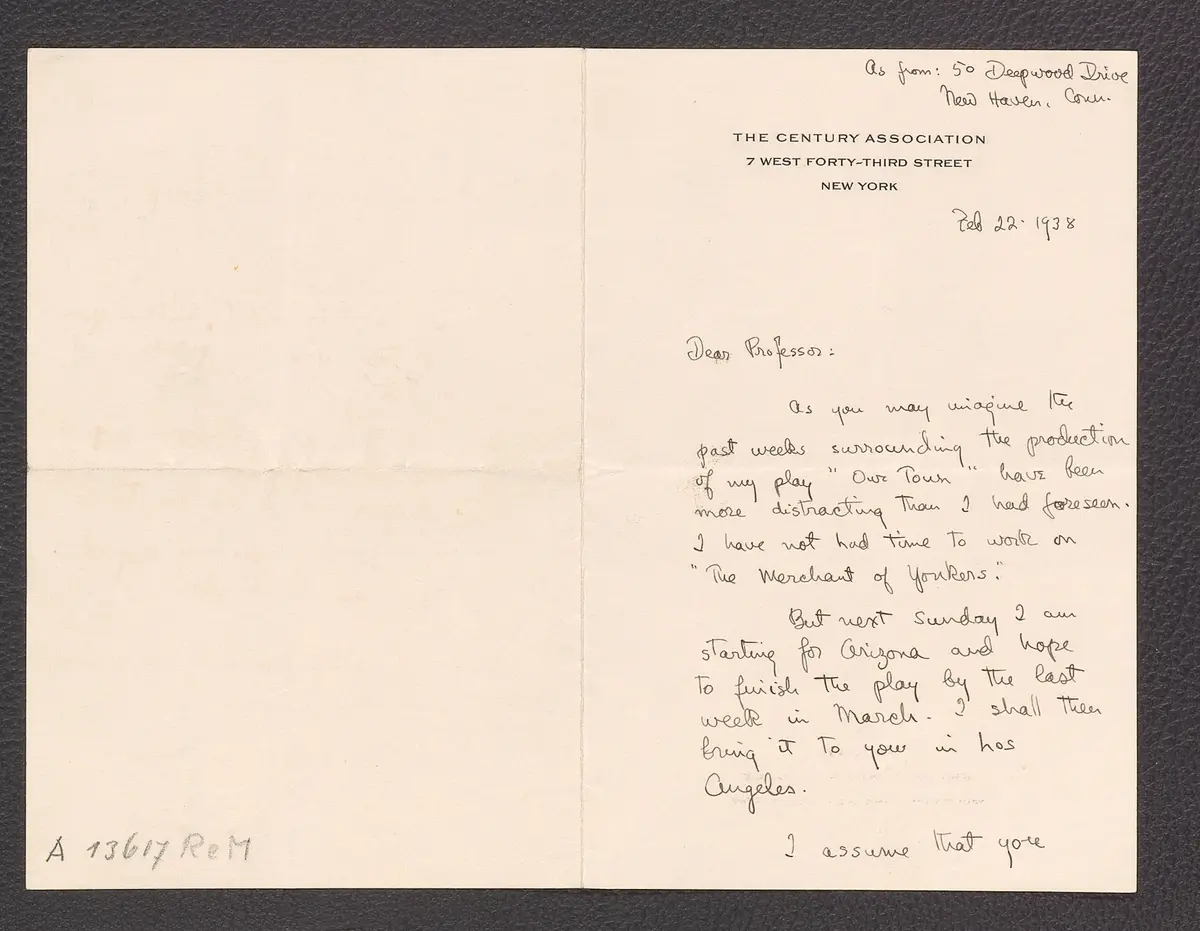 As from: 50 Deepwood Drive
New Haven, Conn.
THE CENTURY ASSOCIATION
7 WEST FORTY-THIRD STREET
NEW YORK
Feb 22 · 1938
Dear Professor:
As you may imagine the
past weeks surrounding the production
of my play "Our Town" have been
more distracting than I had foreseen.
I have not had time to work on
"The Merchant of Yonkers."
But next Sunday I am
starting for Arizona and hope
to finish the play by the last
week in March. I shall then
bring it to you in Los
Angeles.
I assume that you
A 13617 ReM